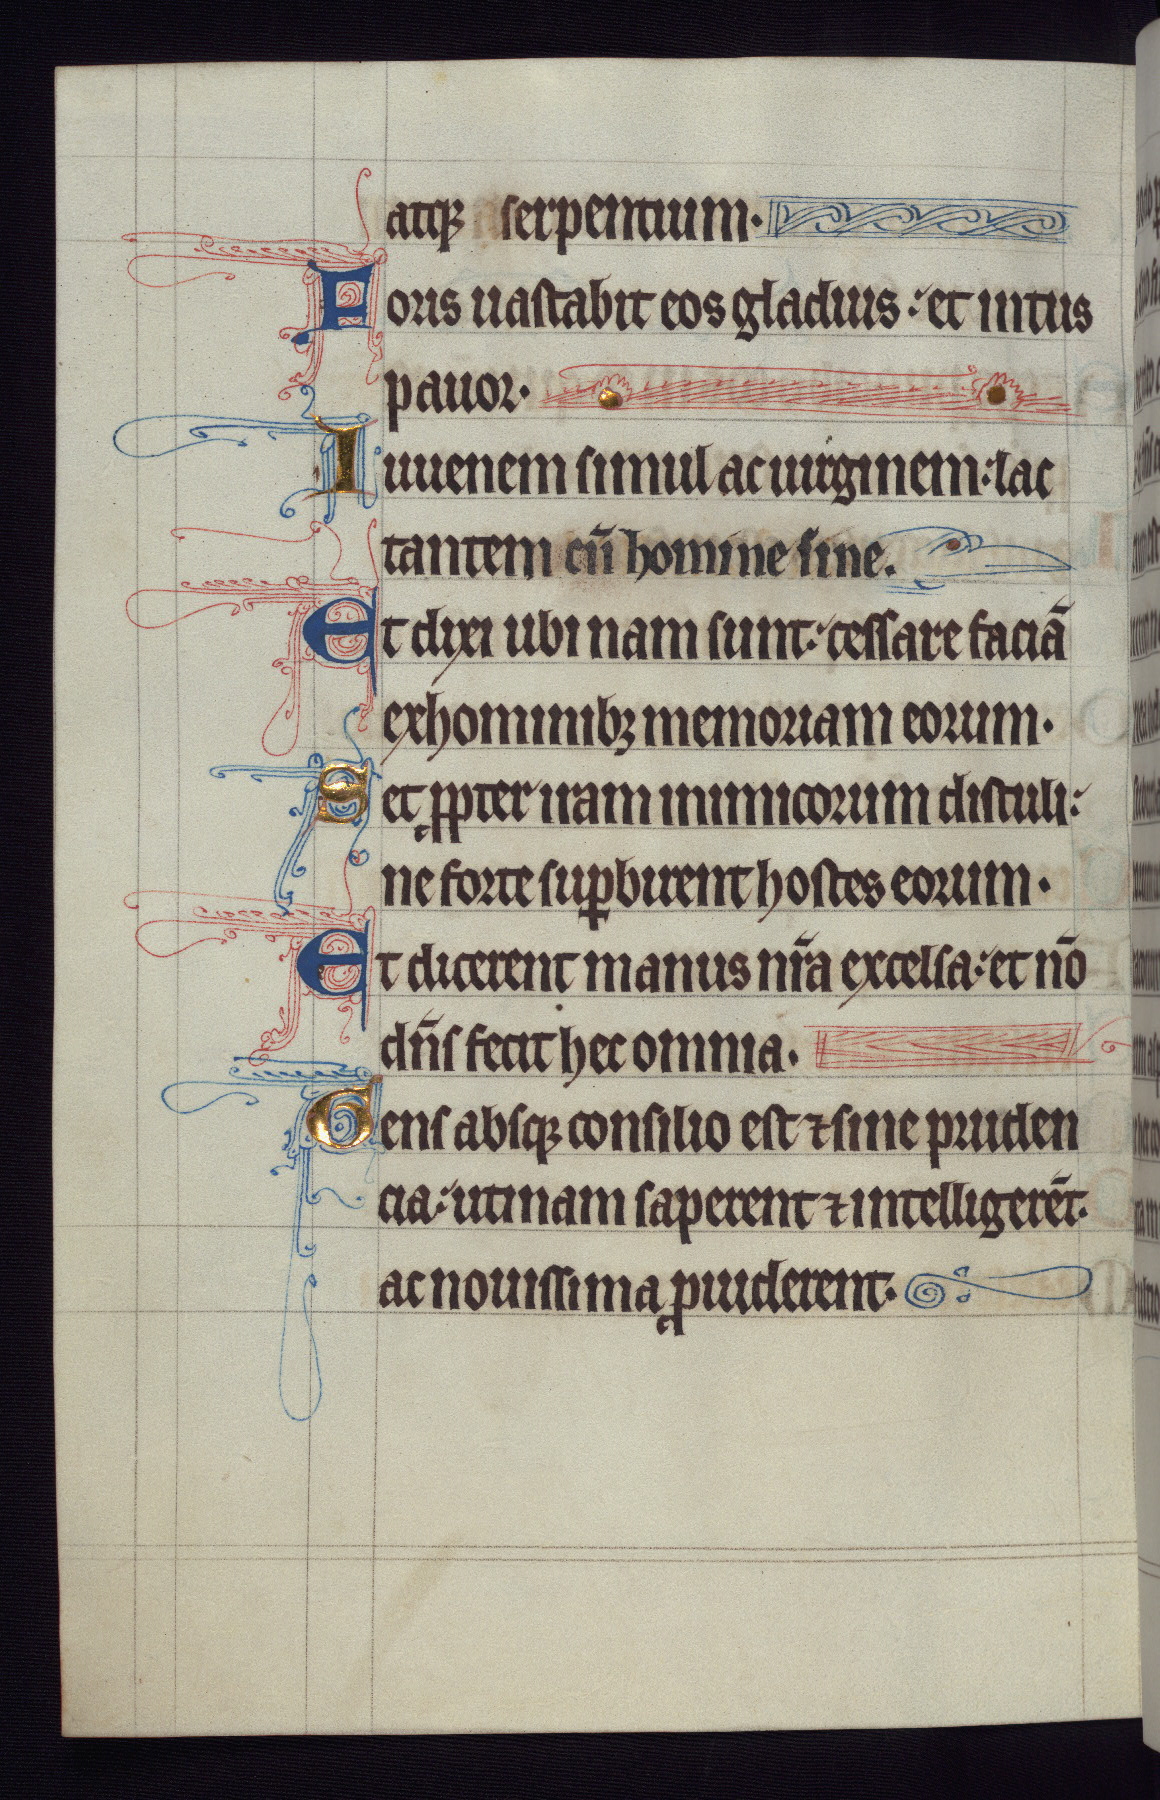 atqꝫ serpentium·
Foris uastabit eos gladius : et intus
pauor·
Iuuenem simul ac uirginem : lac
tantem cū homine sine.
Et dixi ubi nam sunt : cessare faciā
ex hominibꝫ memoriam eorum·
Set ꝓpter iram inimicorum distuli :
ne forte suꝑbirent hostes eorum·
Et dicerent manus nr̄a excelsa : et nō
dn̄s fecit hec omnia·
Gens absqꝫ consilio est ⁊ sine pruden
cia : utinam saperent ⁊ intelligerēt·
ac nouissima ꝓuiderent·